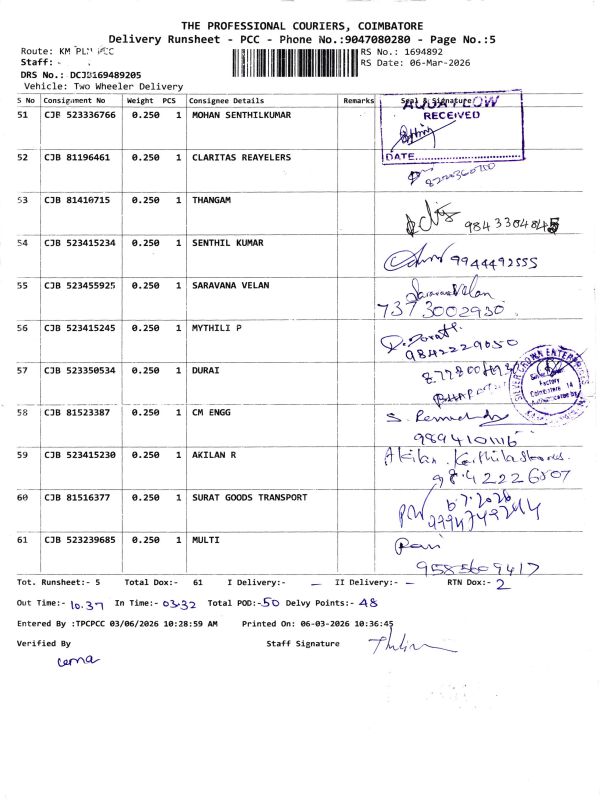 THE PROFESSIONAL COURIERS, COIMBATORE
Delivery Runsheet - PCC - Phone No.:9047080280 - Page No.:5
Route: KM PLM PCC
RS No.: 1694892
Staff:
RS Date: 06-Mar-2026
DRS No.: DCJD169489205
Vehicle: Two Wheeler Delivery
S No Consignment No Weight PCS Consignee Details Remarks Seal & Signature
AQUA FLOW
51 CJB 523336766 0.250 1 MOHAN SENTHILKUMAR RECEIVED
DATE
52 CJB 81196461 0.250 1 CLARITAS REAYELERS
53 CJB 81410715 0.250 1 THANGAM
54 CJB 523415234 0.250 1 SENTHIL KUMAR 9944492555
55 CJB 523455925 0.250 1 SARAVANA VELAN Saravana Velan
7373002930
56 CJB 523415245 0.250 1 MYTHILI P
9842229050
57 CJB 523350534 0.250 1 DURAI
SILVER CROWN ENTERPRISES
Factory
Coimbatore 14
58 CJB 81523387 0.250 1 CM ENGG
9894101116
59 CJB 523415230 0.250 1 AKILAN R Akilan
60 CJB 81516377 0.250 1 SURAT GOODS TRANSPORT
61 CJB 523239685 0.250 1 MULTI Ravi
9585609417
Tot. Runsheet:- 5 Total Dox:- 61 I Delivery:- – II Delivery:- – RTN Dox:- 2
Out Time:- 10.37 In Time:- 03.32 Total POD:- 50 Delvy Points:- 48
Entered By :TPCPCC 03/06/2026 10:28:59 AM Printed On: 06-03-2026 10:36:45
Verified By Staff Signature